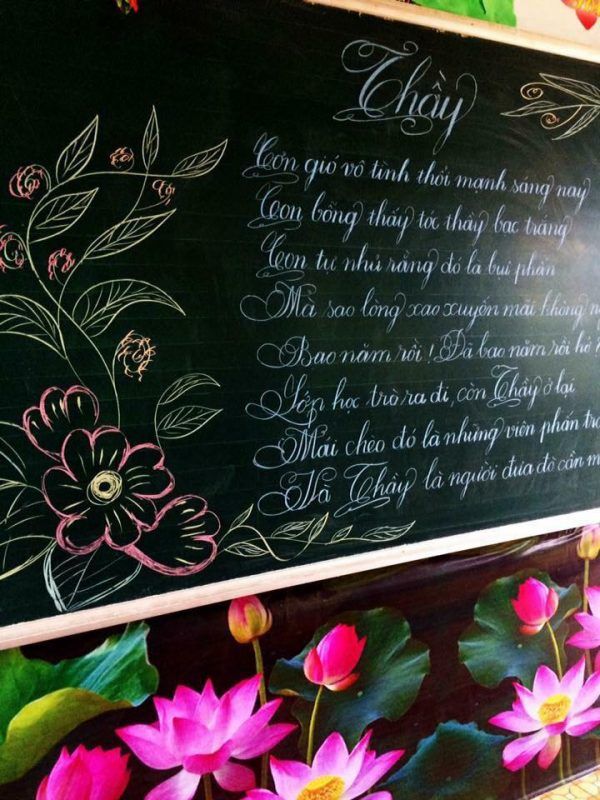 Thầy
Cơn gió vô tình thổi mạnh sáng nay
Con bỗng thấy tóc thầy bạc trắng
Con tự nhủ rằng đó là bụi phấn
Mà sao lòng xao xuyến mãi không
Bao năm rồi! Đã bao năm rồi
Lớp học trò ra đi, còn Thầy ở lại
Mái chèo đó là những viên phấn
Và Thầy là người đưa đò cần